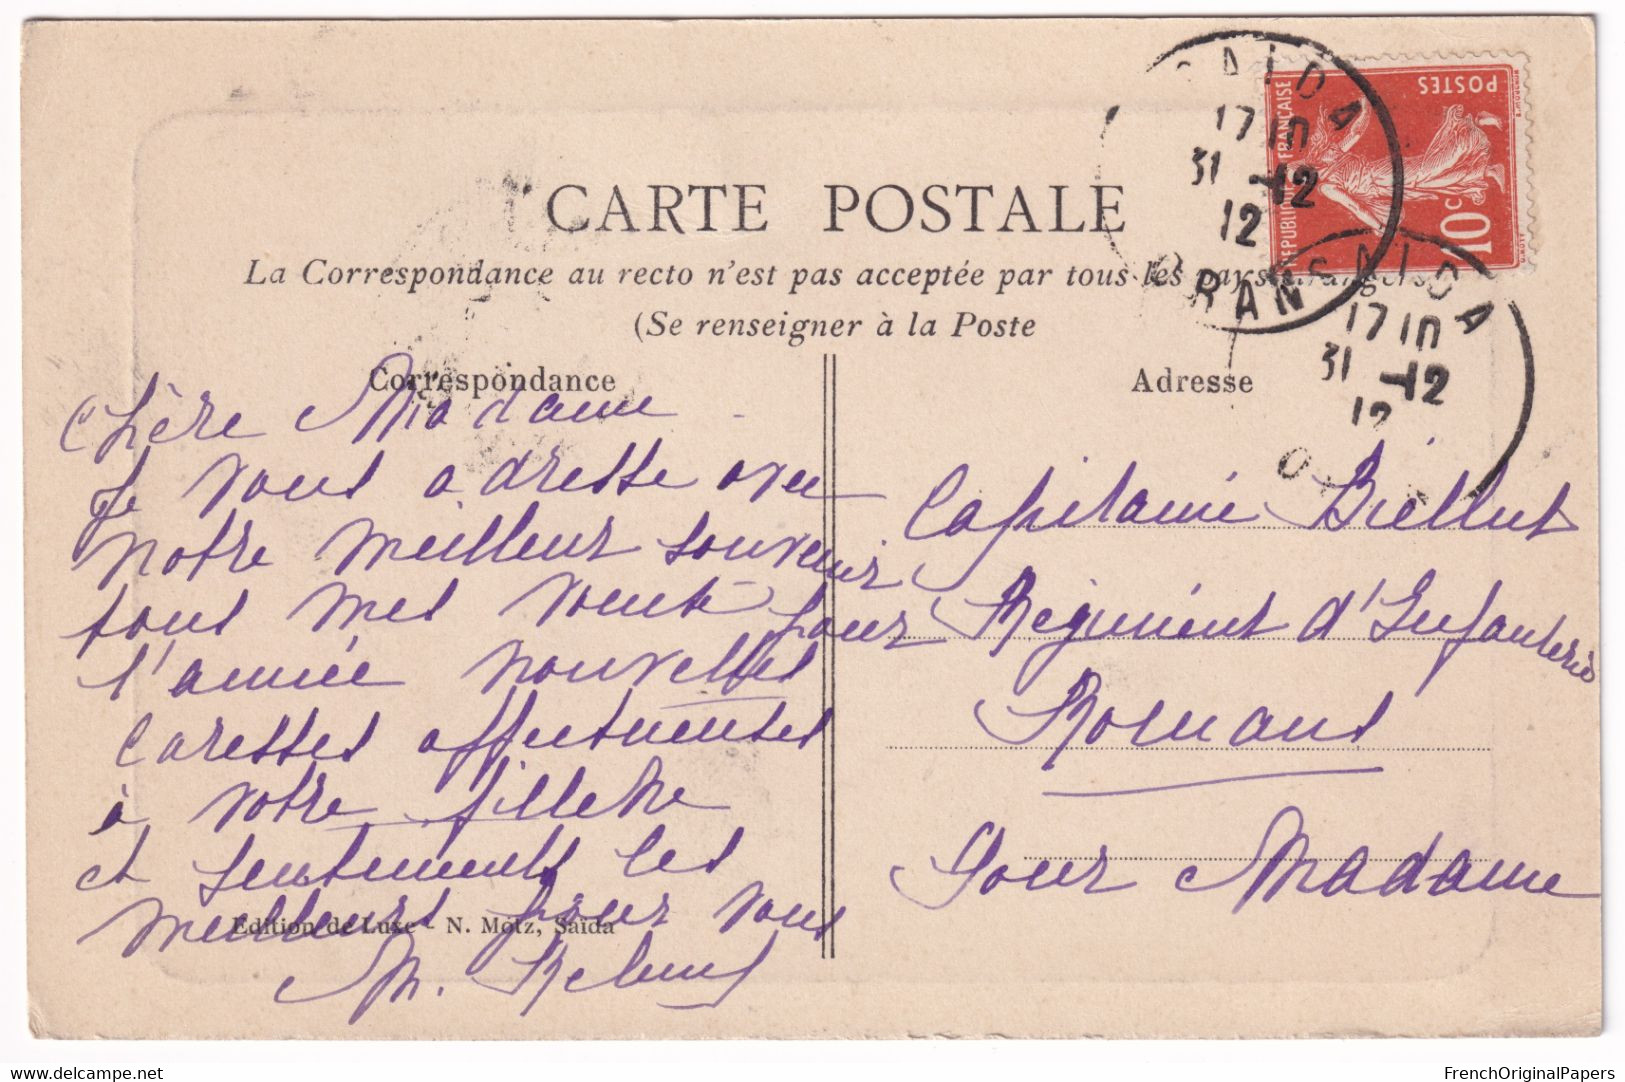 SAIDA
17 10
31 -12
12
ORAN
POSTES
REPUBLIQUE FRANÇAISE
10 c
CARTE POSTALE
La Correspondance au recto n'est pas acceptée par tous les pays étrangers
(Se renseigner à la Poste
SAIDA
17 10
31 -12
12
O
Correspondance
Chère Madame
Je vous adresse avec
notre meilleur souvenir
tous mes voeux pour
l'année nouvelles
Caresses affectueuses
à votre fillette
et sentiments les
meilleurs pour vous
M.
Edition de Luxe - N. Motz, Saïda
Adresse
Capitaine Biellut
Régiment d'Infanterie
Romans
Pour Madame
FrenchOriginalPapers
delcampe.net